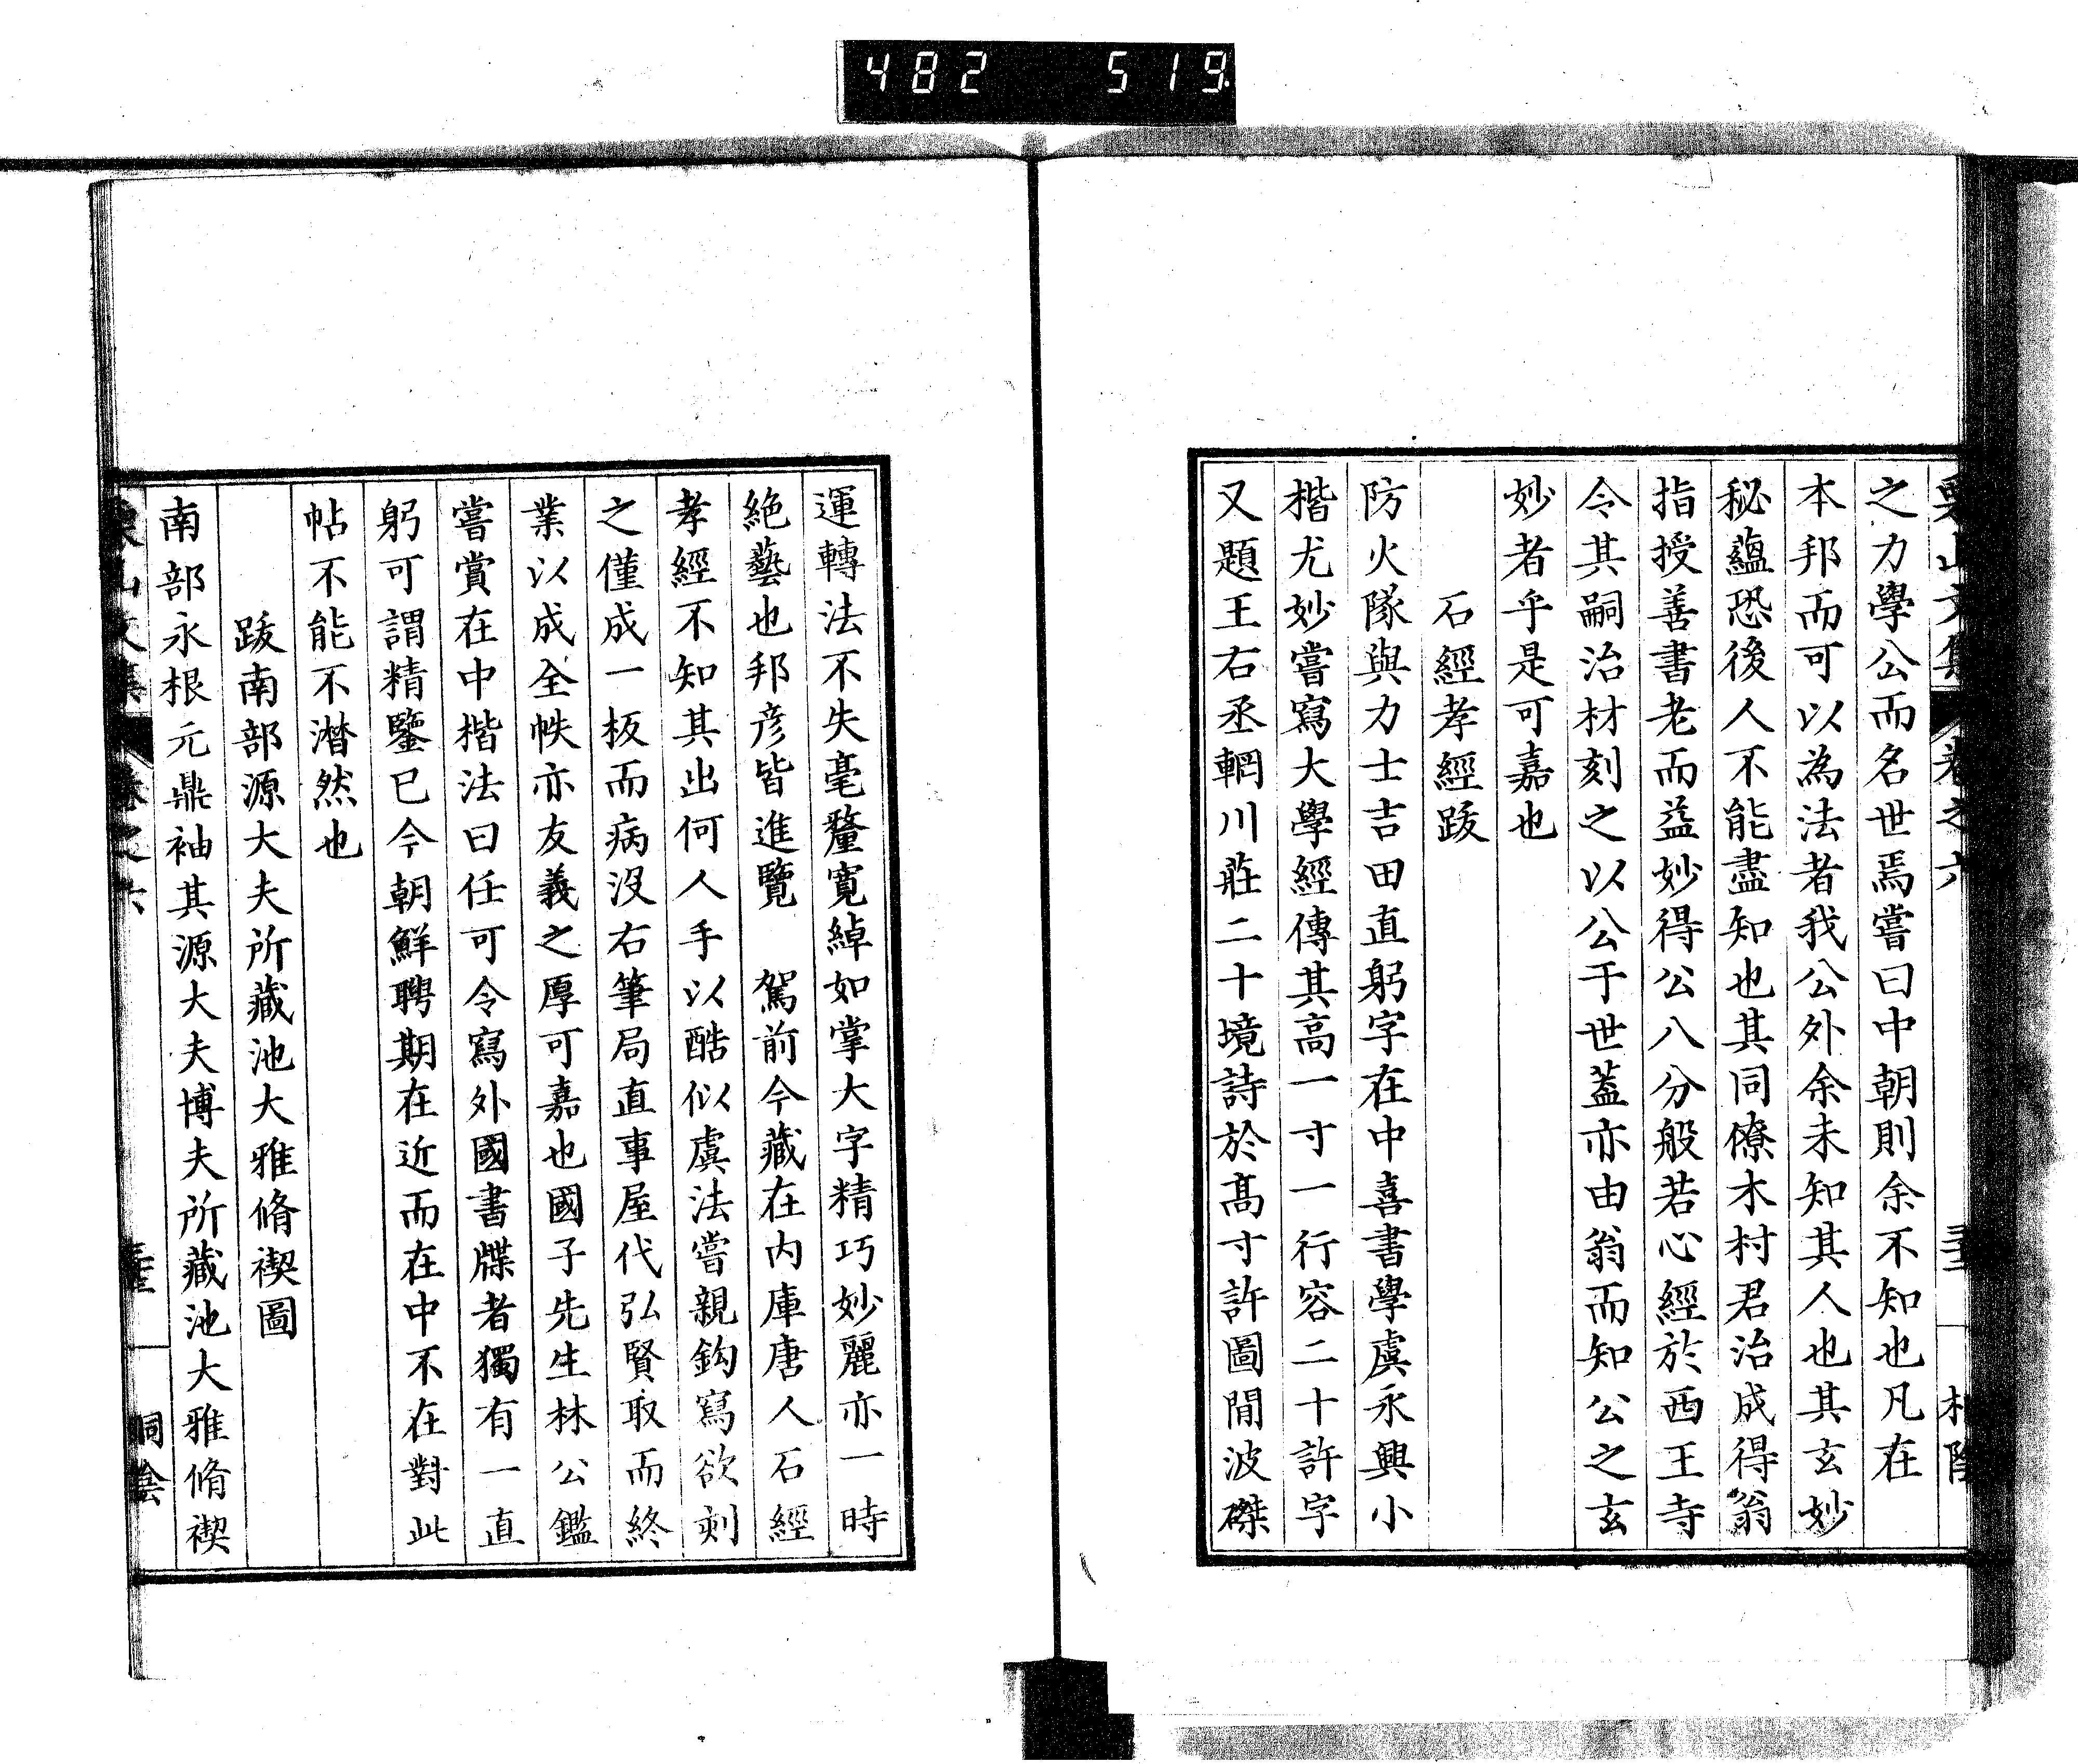 482 519
之力學公而名世焉嘗曰中朝則余不知也凡在
本邦而可以為法者我公外余未知其人也其玄妙
秘蘊恐後人不能盡知也其同僚木村君治成得翁
指授善書老而益妙得公八分般若心經於西王寺
令其嗣治材刻之以公于世蓋亦由翁而知公之玄
妙者乎是可嘉也
石經孝經跋
防火隊與力士吉田直躬字在中喜書學虞永興小
楷尤妙嘗寫大學經傳其高一寸一行容二十許字
又題王右丞輞川莊二十境詩於髙寸許圖間波磔
運轉法不失毫釐寬綽如掌大字精巧妙麗亦一時
絶藝也邦彦皆進覽　駕前今藏在内庫唐人石經
孝經不知其出何人手以酷似虞法嘗親鈎寫欲刻
之僅成一板而病没右筆局直事屋代弘賢取而終
業以成全帙亦友義之厚可嘉也國子先生林公鑑
嘗賞在中楷法曰任可令寫外國書牒者獨有一直
躬可謂精鑒已今朝鮮聘期在近而在中不在對此
帖不能不潸然也
跋南部源大夫所藏池大雅脩禊圖
南部永根元鼎袖其源大夫博夫所藏池大雅脩禊